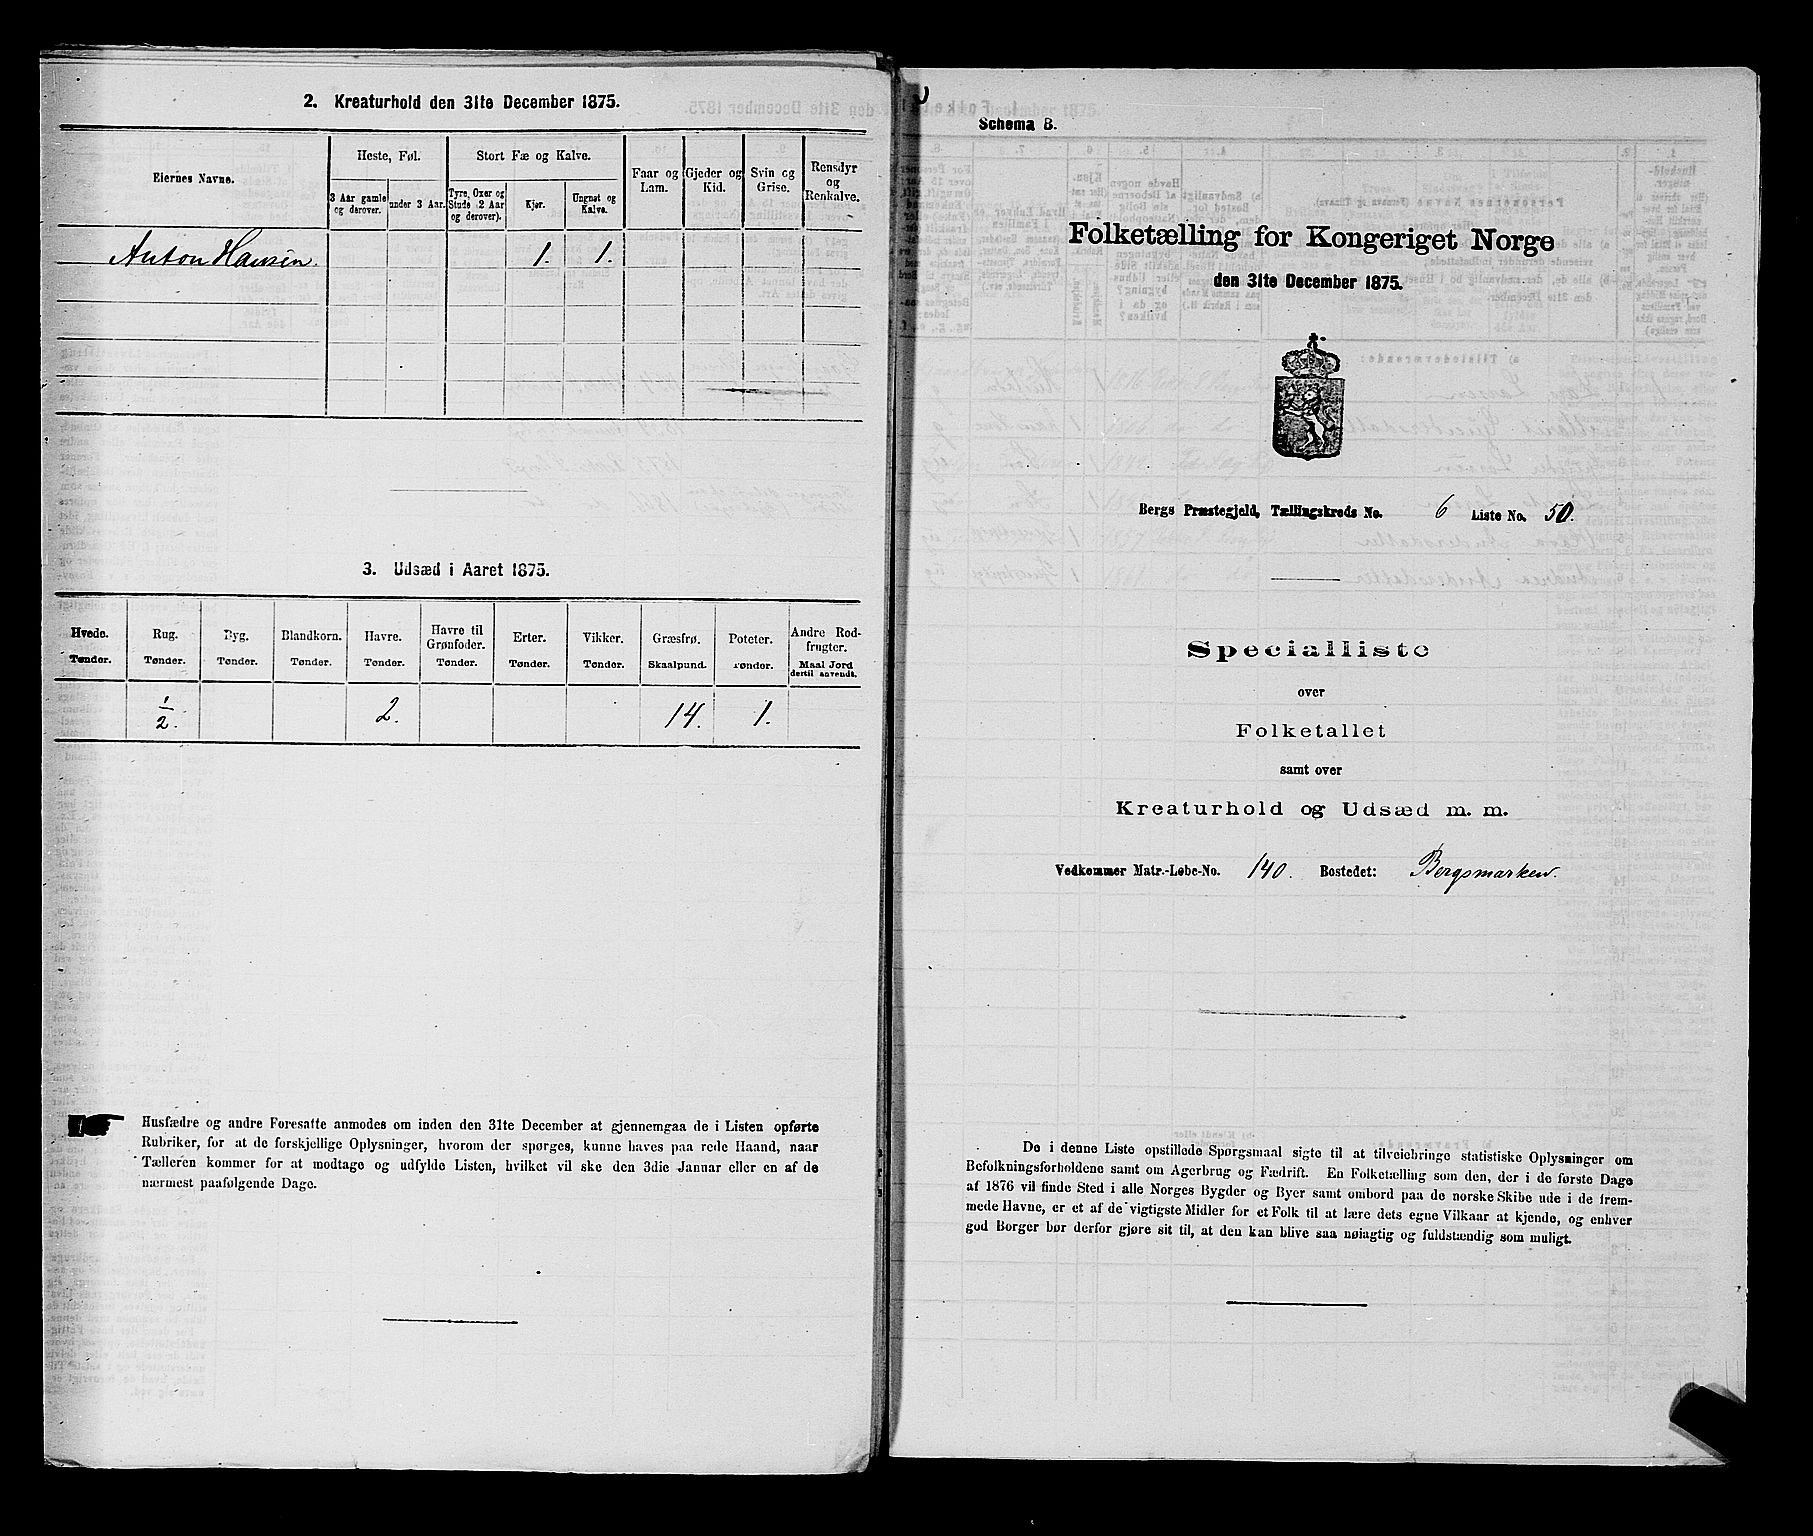 2. Kreaturhold den 31te December 1875.
Eiernes Navne.
Heste, Føl.
Stort Fæ og Kalve.
3 Aar gamle og derover.
under 3 Aar.
Tyre, Oxer og Stude (2 Aar og derover).
Kjør.
Ungnøt og Kalve.
Faar og Lam.
Gjeder og Kid.
Svin og Grise.
Rensdyr og Renkalve.
Anton Hansen. 1. 1.
3. Udsæd i Aaret 1875.
Hvede. Rug. Byg. Blandkorn. Havre. Havre til Grønfoder. Erter. Vikker. Græsfrø. Poteter. Andre Rodfrugter.
Tønder. Tønder. Tønder. Tønder. Tønder. Tønder. Tønder. Tønder. Skaalpund. Tønder. Maal Jord dertil anvendt.
1/2. 2. 14. 1.
Husfædre og andre Foresatte anmodes om inden den 31te December at gjennemgaa de i Listen opførte
Rubriker, for at de forskjellige Oplysninger, hvorom der spørges, kunne haves paa rede Haand, naar
Tælleren kommer for at modtage og udfylde Listen, hvilket vil ske den 3die Januar eller en af de
nærmest paafølgende Dage.
Schema B.
Folketælling for Kongeriget Norge
den 31te December 1875.
Bergs Præstegjeld, Tællingskreds No. 6 Liste No. 50.
Specialliste
over
Folketallet
samt over
Kreaturhold og Udsæd m. m.
Vedkommer Matr.-Løbe-No. 140. Bostedet: Bergsmarken.
De i denne Liste opstillede Spørgsmaal sigte til at tilveiebringe statistiske Oplysninger om
Befolkningsforholdene samt om Agerbrug og Fædrift. En Folketælling som den, der i de første Dage
af 1876 vil finde Sted i alle Norges Bygder og Byer samt ombord paa de norske Skibe ude i de frem-
mede Havne, er et af de vigtigste Midler for et Folk til at lære dets egne Vilkaar at kjende, og enhver
god Borger bør derfor gjøre sit til, at den kan blive saa nøiagtig og fuldstændig som muligt.